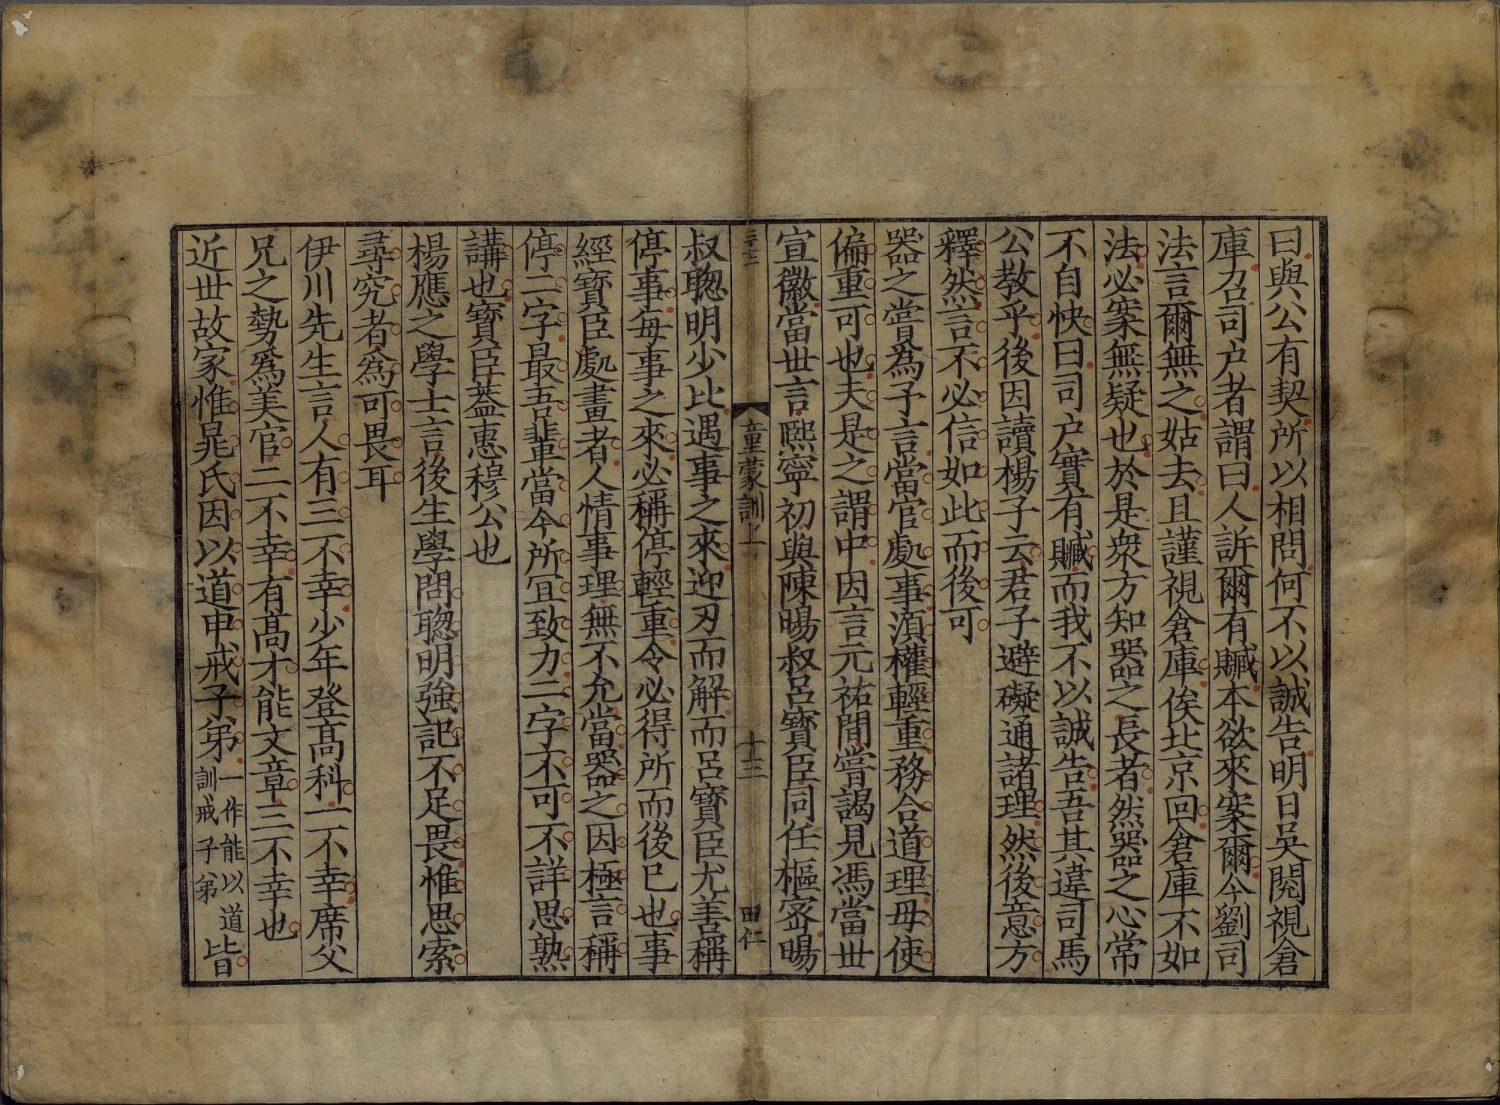 曰與公有契所以相問何不以誠告明日吳閱視倉
庫召司户者謂曰人訴爾有贓本欲來案爾今劉司
法言爾無之姑去且謹視倉庫俟北京回倉庫不如
法必案無疑也於是衆方知器之長者然器之心常
不自快曰司户實有贓而我不以誠告吾其違司馬
公教乎後因讀楊子云君子避礙通諸理然後意方
釋然言不必信如此而後可
器之嘗為予言當官處事湏權輕重務合道理毋使
偏重可也夫是之謂中因言元祐間嘗謁見馮當世
宣徽當世言熈寧初與陳暘叔吕寳臣同任樞宻暘
童蒙訓上
十三
田仁
叔聦明少比遇事之來迎刃而解而吕寳臣尤善稱
停事每事之來必稱停輕重令必得所而後已也事
經寳臣處畫者人情事理無不允當器之因極言稱
停二字最吾軰當今所宜致力二字不可不詳思熟
講也寳臣葢惠穆公也
楊應之學士言後生學問聦明強記不足畏惟思索
尋究者為可畏耳
伊川先生言人有三不幸少年登高科一不幸席父
兄之勢爲美官二不幸有高才能文章三不幸也
近世故家惟晁氏因以道申戒子弟一作能以道訓戒子弟皆